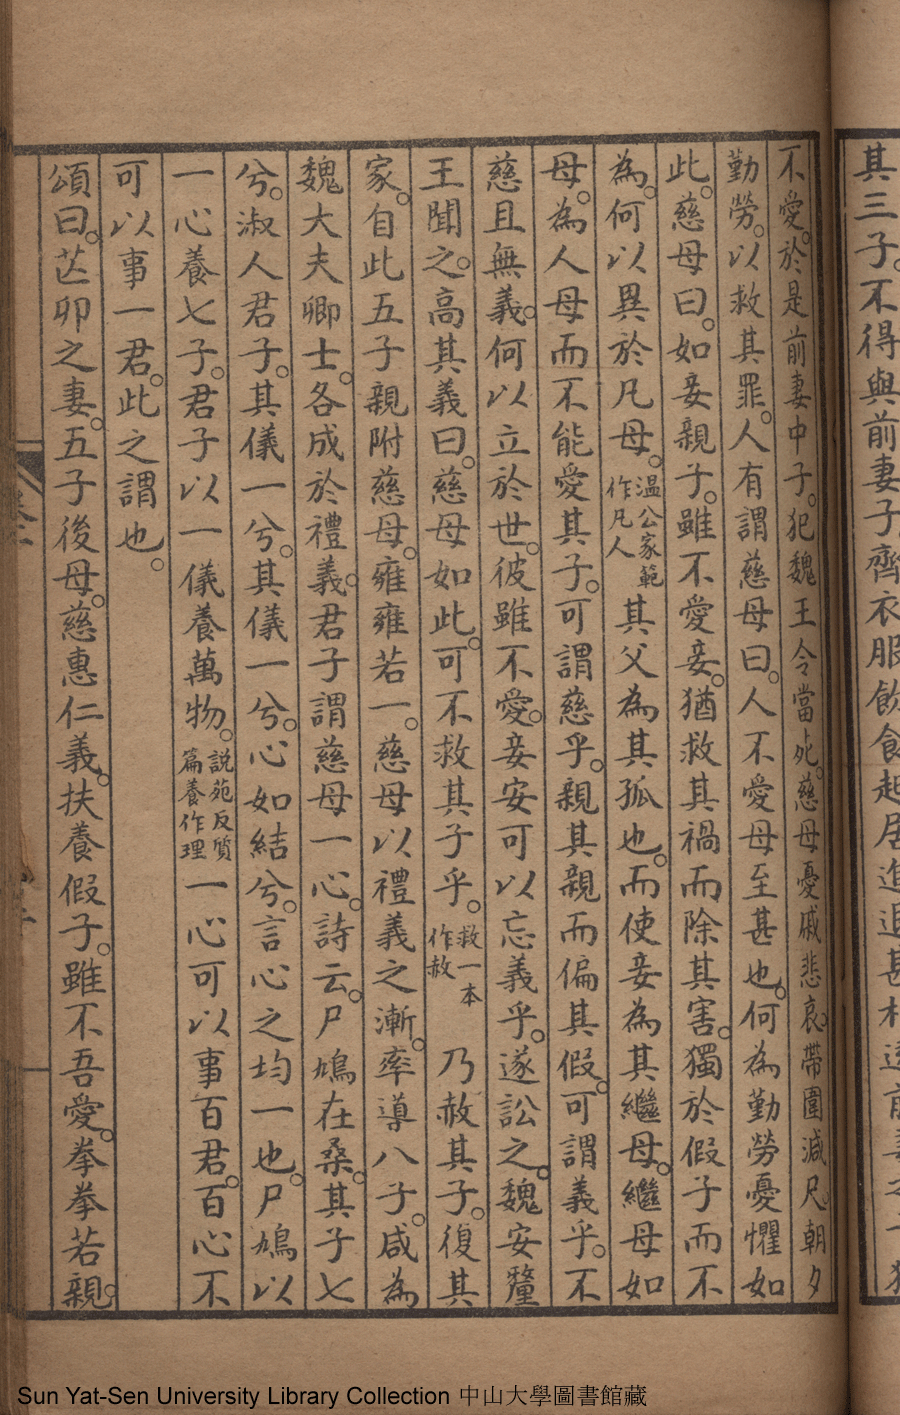 其三子。不得與前妻子齊衣服飲食起居進退甚相遠前妻之子猶
不愛。於是前妻中子。犯魏王令當死。慈母憂戚悲哀。帶圍減尺。朝夕
勤勞。以救其罪。人有謂慈母曰。人不愛母至甚也。何為勤勞憂懼如
此。慈母曰。如妾親子。雖不愛妾。猶救其禍而除其害。獨於假子而不
為。何以異於凡母。温公家範作凡人其父為其孤也。而使妾為其繼母。繼母如
母。為人母而不能愛其子。可謂慈乎。親其親而偏其假。可謂義乎。不
慈且無義。何以立於世。彼雖不愛。妾安可以忘義乎。遂訟之。魏安釐
王聞之。高其義曰。慈母如此。可不救其子乎。救一本作赦乃赦其子。復其
家。自此五子親附慈母。雍雍若一。慈母以禮義之漸。率導八子。咸為
魏大夫卿士。各成於禮義。君子謂慈母一心。詩云。尸鳩在桑。其子七
兮。淑人君子。其儀一兮。其儀一兮。心如結兮。言心之均一也。尸鳩以
一心養七子。君子以一儀養萬物。說苑反質篇養作理一心可以事百君。百心不
可以事一君。此之謂也。
頌曰。芒卯之妻。五子後母。慈惠仁義。扶養假子。雖不吾愛。拳拳若親。
Sun Yat-Sen University Library Collection 中山大學圖書館藏